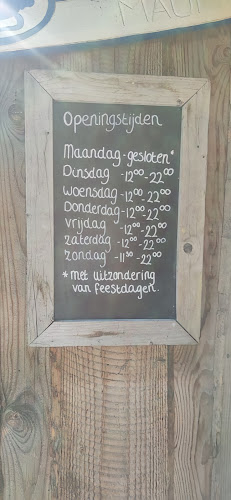 MAUI
Openingstijden
Maandag - gesloten*
Dinsdag - 12⁰⁰ - 22⁰⁰
woensdag - 12⁰⁰ - 22⁰⁰
Donderdag - 12⁰⁰ - 22⁰⁰
vrijdag - 12⁰⁰ - 22⁰⁰
zaterdag - 12⁰⁰ - 22⁰⁰
zondag - 11³⁰ - 22⁰⁰
* met uitzondering
van feestdagen.